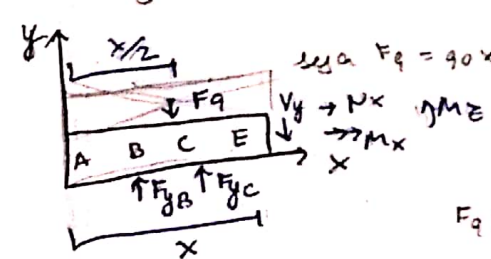 y
x/2
Fq = q0x
Fq
Vy → Nx
Mz
→→ Mx
A B C E
x
FyB FyC
Fq
x